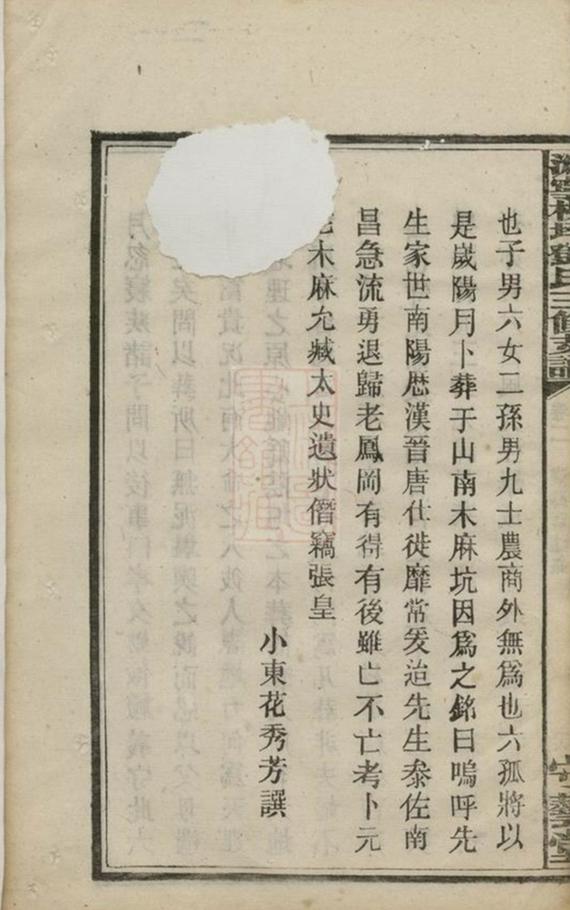 也子男六女二孫男九士農商外無爲也六孤將以
是歲陽月卜葬于山南木麻坑因爲之銘曰嗚呼先
生家世南陽歷漢晉唐仕徙靡常爰迨先生叅佐南
昌急流勇退歸老鳳岡有得有後雖亡不亡考卜元
木麻允臧太史遺狀僭竊張皇
小東花秀芳譔
氏三修支譜
守藝堂